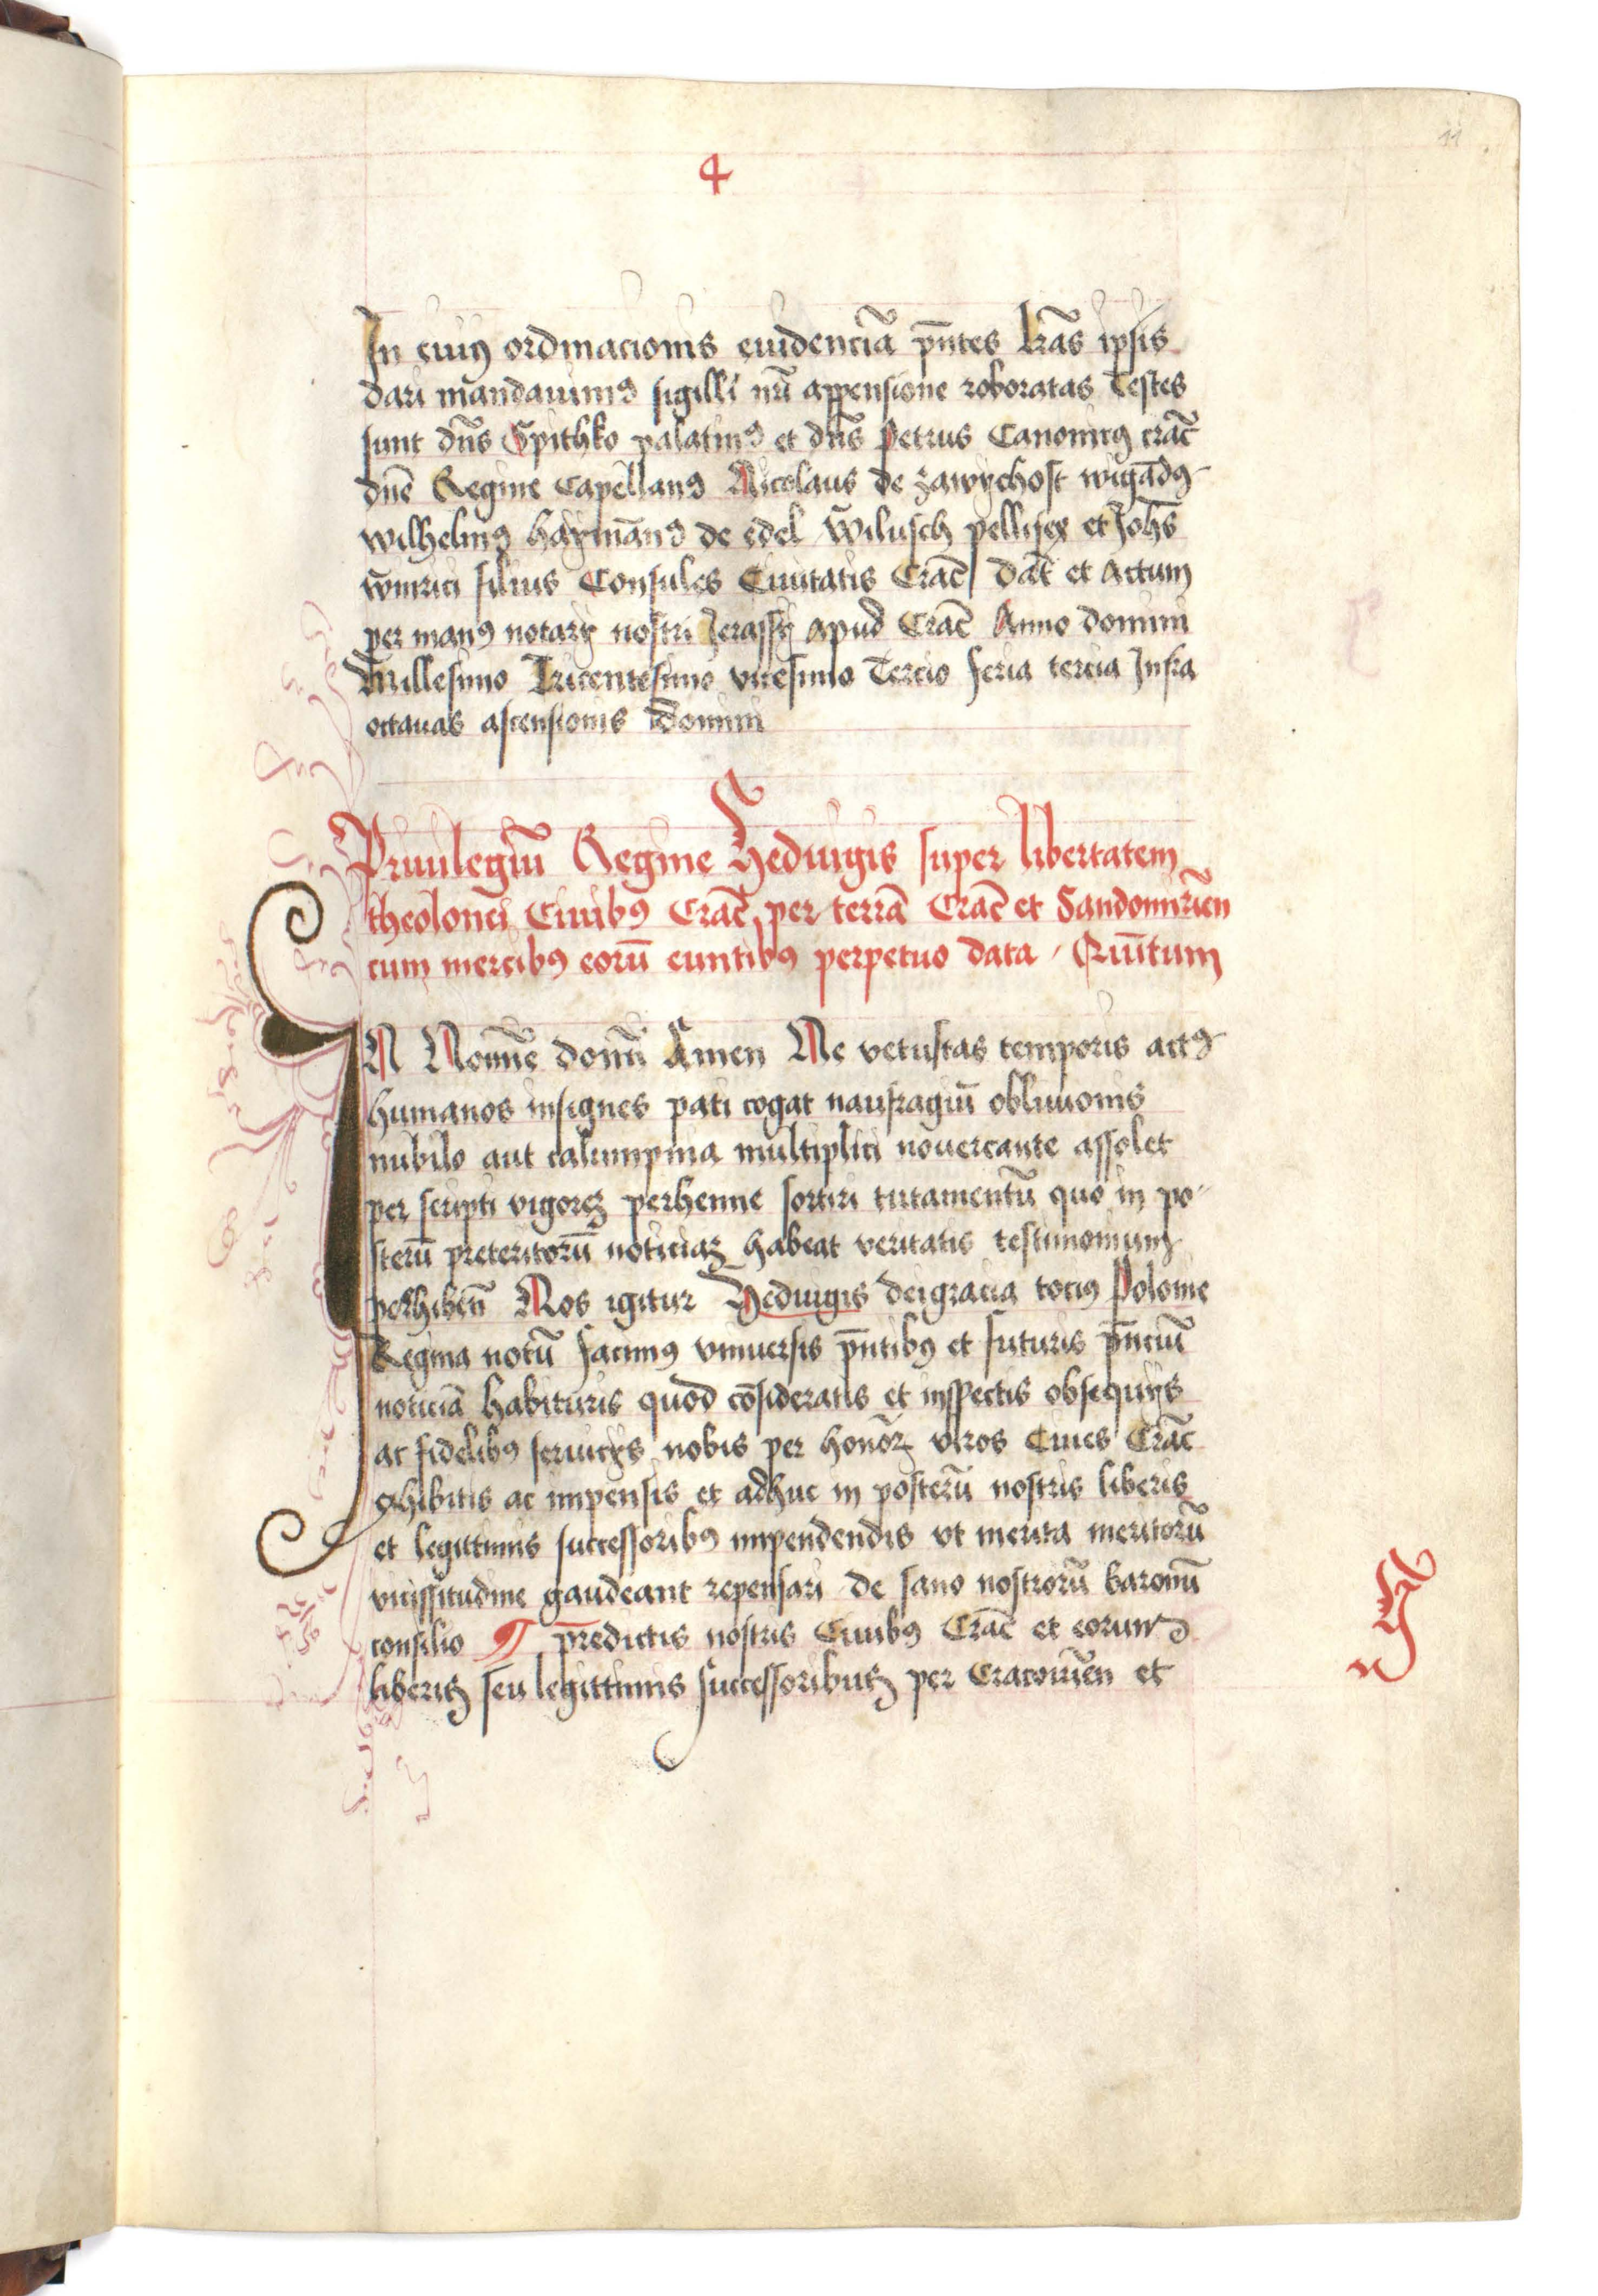 11
4
In cuiꝰ ordinacionis euidenciā pn̄tes lrās ipsis
dari mandauimꝰ sigilli nrī appensione roboratas Testes
sunt dn̄s Spithko palatinꝰ et dn̄s Petrus Canonicꝰ crac̄
dn̄e Regine Capellanꝰ Nicolaus de zawychost wigādꝰ
wilhelmꝰ haymānꝰ de edel wilusch pellifex et Joh̄s
winrici filius Consules Ciuitatis Crac̄ dat̄ et Actum
per manꝰ notarÿ nostri Jerassÿ apud Crac̄ Anno domini
Millesimo Tricentesimo vicesimo Tercio feria tercia Infra
octauas ascensionis domini
Priuilegiū Regine Hedwigis super libertatem
theolonei Ciuibꝰ Crac̄ per terrā Crac̄ et Sandomiriēn
cum mercibꝰ eorū euntibꝰ perpetuo data / Quītum
IN Nomīe domī Amen Ne vetustas temporis actꝰ
humanos insignes pati cogat naufragiū obliuionis
nubilo aut calumpnia multiplici nouercante assolet
per scripti vigorēꝫ perhenne sortiri tutamentū quo in po
sterū preteritorū noticiaꝫ habeat veritatis testimonium
perhibēn Nos igitur Hedwigis dei gracia tociꝰ Polonie
Regina notū facimꝰ vniuersis pn̄tibꝰ et futuris pn̄ciū
noticiā habituris quod cōsideratis et inspectis obsequÿs
ac fidelibꝰ seruicÿs nobis per honōrꝫ viros Ciues Crac̄
exhibitis ac impensis et adhuc in posterū nostris liberis
et legittimis successoribꝰ impendendis vt merita meritorū
vicissitudine gaudeant repensari de sano nostrorū baronū
consilio ¶ p̄redictis nostris Ciuibꝰ Crac̄ et eorum
liberis seu legittimis successoribus per Cracouiēn et